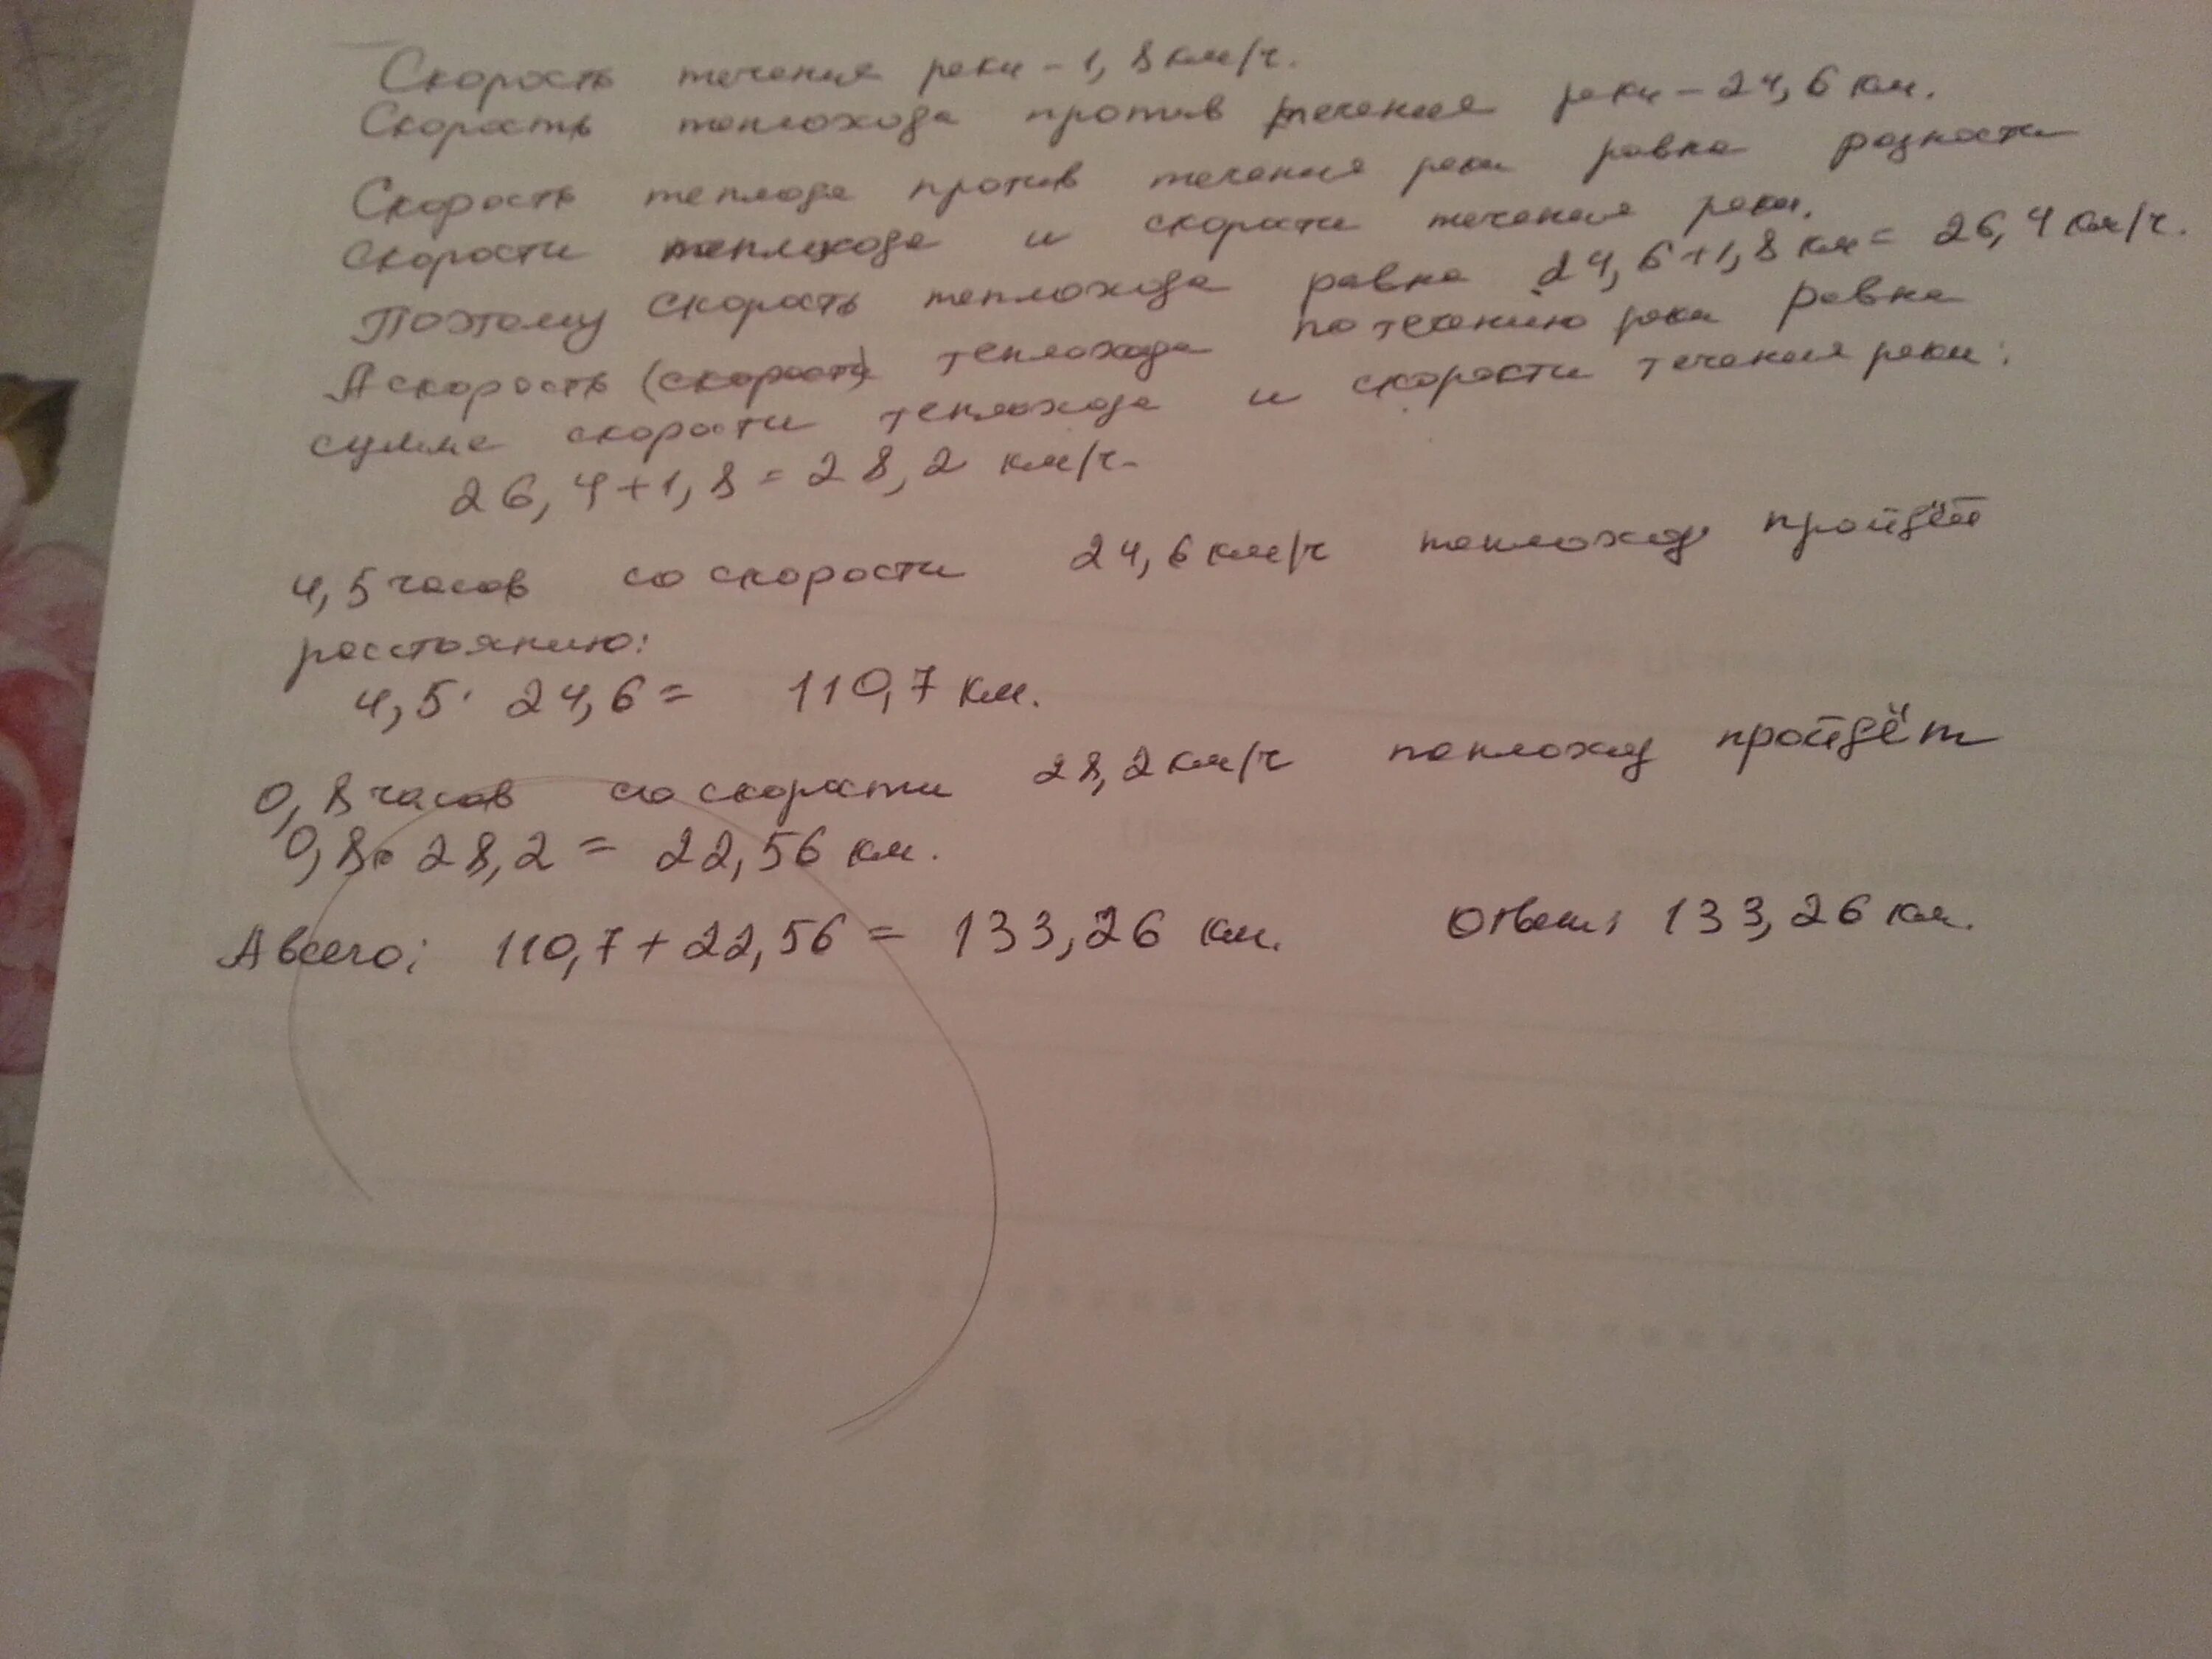 Скорость течения реки - 1,8 км/ч.
Скорость теплохода против течения реки - 24,6 км.
Скорость теплода против течения реки равна разности
скорости теплохода и скорости течения реки.
Поэтому скорость теплохода равна 24,6+1,8 км = 26,4 км/ч.
А скорость (скорости) теплохода по течению реки равна
сумме скорости теплохода и скорости течения реки:
26,4+1,8 = 28,2 км/ч.
4,5 часов со скорости 24,6 км/ч теплоход пройдёт
расстоянию:
4,5 · 24,6 = 110,7 км.
0,8 часов со скорости 28,2 км/ч теплоход пройдёт
0,8 · 28,2 = 22,56 км.
А всего: 110,7 + 22,56 = 133,26 км. Ответ: 133,26 км.